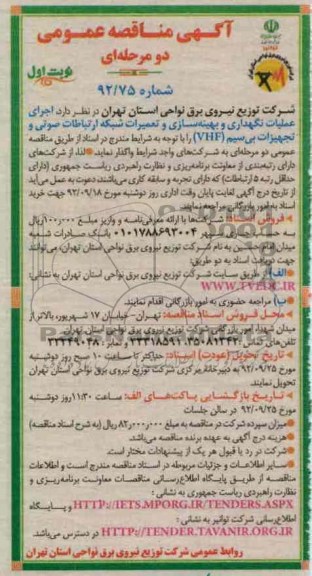 آگهی مناقصه عمومی
دو مرحله‌ای
نوبت اول
شماره ۹۲/۷۵
شرکت توزیع نیروی برق نواحی استان تهران در نظر دارد اجرای
عملیات نگهداری و بهینه‌سازی و تعمیرات شبکه ارتباطات صوتی و
تجهیزات بی‌سیم (VHF) را با توجه به شرایط مندرج در اسناد از طریق مناقصه
عمومی دو مرحله‌ای به شرکت‌های واجد شرایط واگذار نماید. لذا، از شرکت‌های
دارای رتبه‌بندی از معاونت برنامه‌ریزی و نظارت راهبردی ریاست جمهوری (دارای
حداقل رتبه ۵ ارتباطات) که دارای تجربه و سابقه کاری می‌باشند، دعوت به عمل می‌آید
از تاریخ درج آگهی لغایت پایان وقت اداری روز دوشنبه مورخ ۹۲/۰۹/۱۸ جهت خرید
اسناد به امور بازرگانی مراجعه نمایند.
فروش اسناد: شرکت‌ها با ارائه معرفی‌نامه و واریز مبلغ ۱۰۰٫۰۰۰ریال
به حساب جاری سپهر ۰۱۰۱۷۸۸۶۹۳۰۰۴ بانک صادرات شعبه
میدان فلسطین به نام شرکت توزیع نیروی برق نواحی استان تهران، می‌توانند
جهت دریافت اسناد به دو طریق:
الف) از طریق سایت شرکت توزیع نیروی برق نواحی استان تهران به نشانی:
WWW.TVEDC.IR
ب) مراجعه حضوری به امور بازرگانی اقدام نمایند.
محل فروش اسناد مناقصه: تهران - خیابان ۱۷ شهریور، بالاتر از
میدان شهدا، امور بازرگانی شرکت توزیع نیروی برق نواحی استان تهران.
تلفن‌های تماس: ۳۵۰۸۱۳۴۲، ۳۳۳۱۸۵۹۱ نمابر: ۳۳۳۴۹۰۴۸
تاریخ تحویل (عودت) اسناد: حداکثر تا ساعت ۱۰ صبح روز دوشنبه
مورخ ۹۲/۰۹/۲۵ به دبیرخانه مرکزی شرکت توزیع نیروی برق نواحی استان تهران
تحویل نمایند.
تاریخ بازگشایی پاکت‌های الف: ساعت ۱۱:۳۰ روز دوشنبه
مورخ ۹۲/۰۹/۲۵ در سالن جلسات
میزان سپرده شرکت در مناقصه به مبلغ ۸۲٫۰۰۰٫۰۰۰ریال (به شرح اسناد مناقصه)
هزینه درج آگهی به عهده برنده مناقصه می‌باشد.
شرکت در رد یا قبول هر یک از پیشنهادات مختار است.
سایر اطلاعات و جزئیات مربوطه در اسناد مناقصه مندرج است و اطلاعات
مناقصه از طریق پایگاه اطلاع‌رسانی مناقصات معاونت برنامه‌ریزی و
نظارت راهبردی ریاست جمهوری به نشانی:
HTTP://IETS.MPORG.IR/TENDERS.ASPX و پایگاه
اطلاع‌رسانی شرکت توانیر به نشانی:
HTTP://TENDER.TAVANIR.ORG.IR در دسترس می‌باشد.
روابط عمومی شرکت توزیع نیروی برق نواحی استان تهران